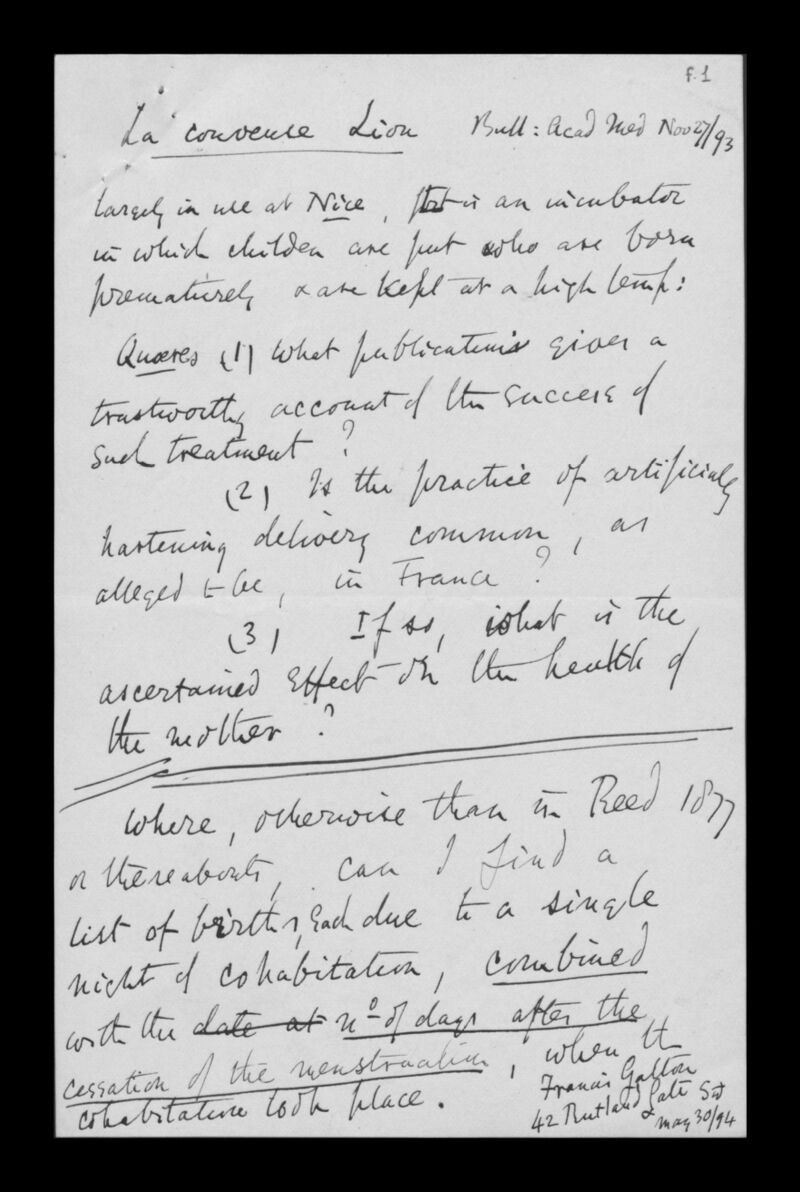 f.1
La couveuse Lion Bull: Acad Med Nov 27/93
largely in use at Nice, is an incubator
in which children are put who are born
prematurely & are kept at a high temp:
Quæres (1) What publications gives a
trustworthy account of the success of
such treatment?
(2) Is the practice of artificially
hastening delivery common, as
alleged to be, in France?
(3) If so, what is the
ascertained effect on the health of
the mother?
Where, otherwise than in Reed 1877
or thereabouts, can I find a
list of births, each due to a single
night of cohabitation, combined
with the date at nº of days after the
cessation of the menstruation, when the
cohabitation took place.
Francis Galton
42 Rutland Gate SW
May 30/94